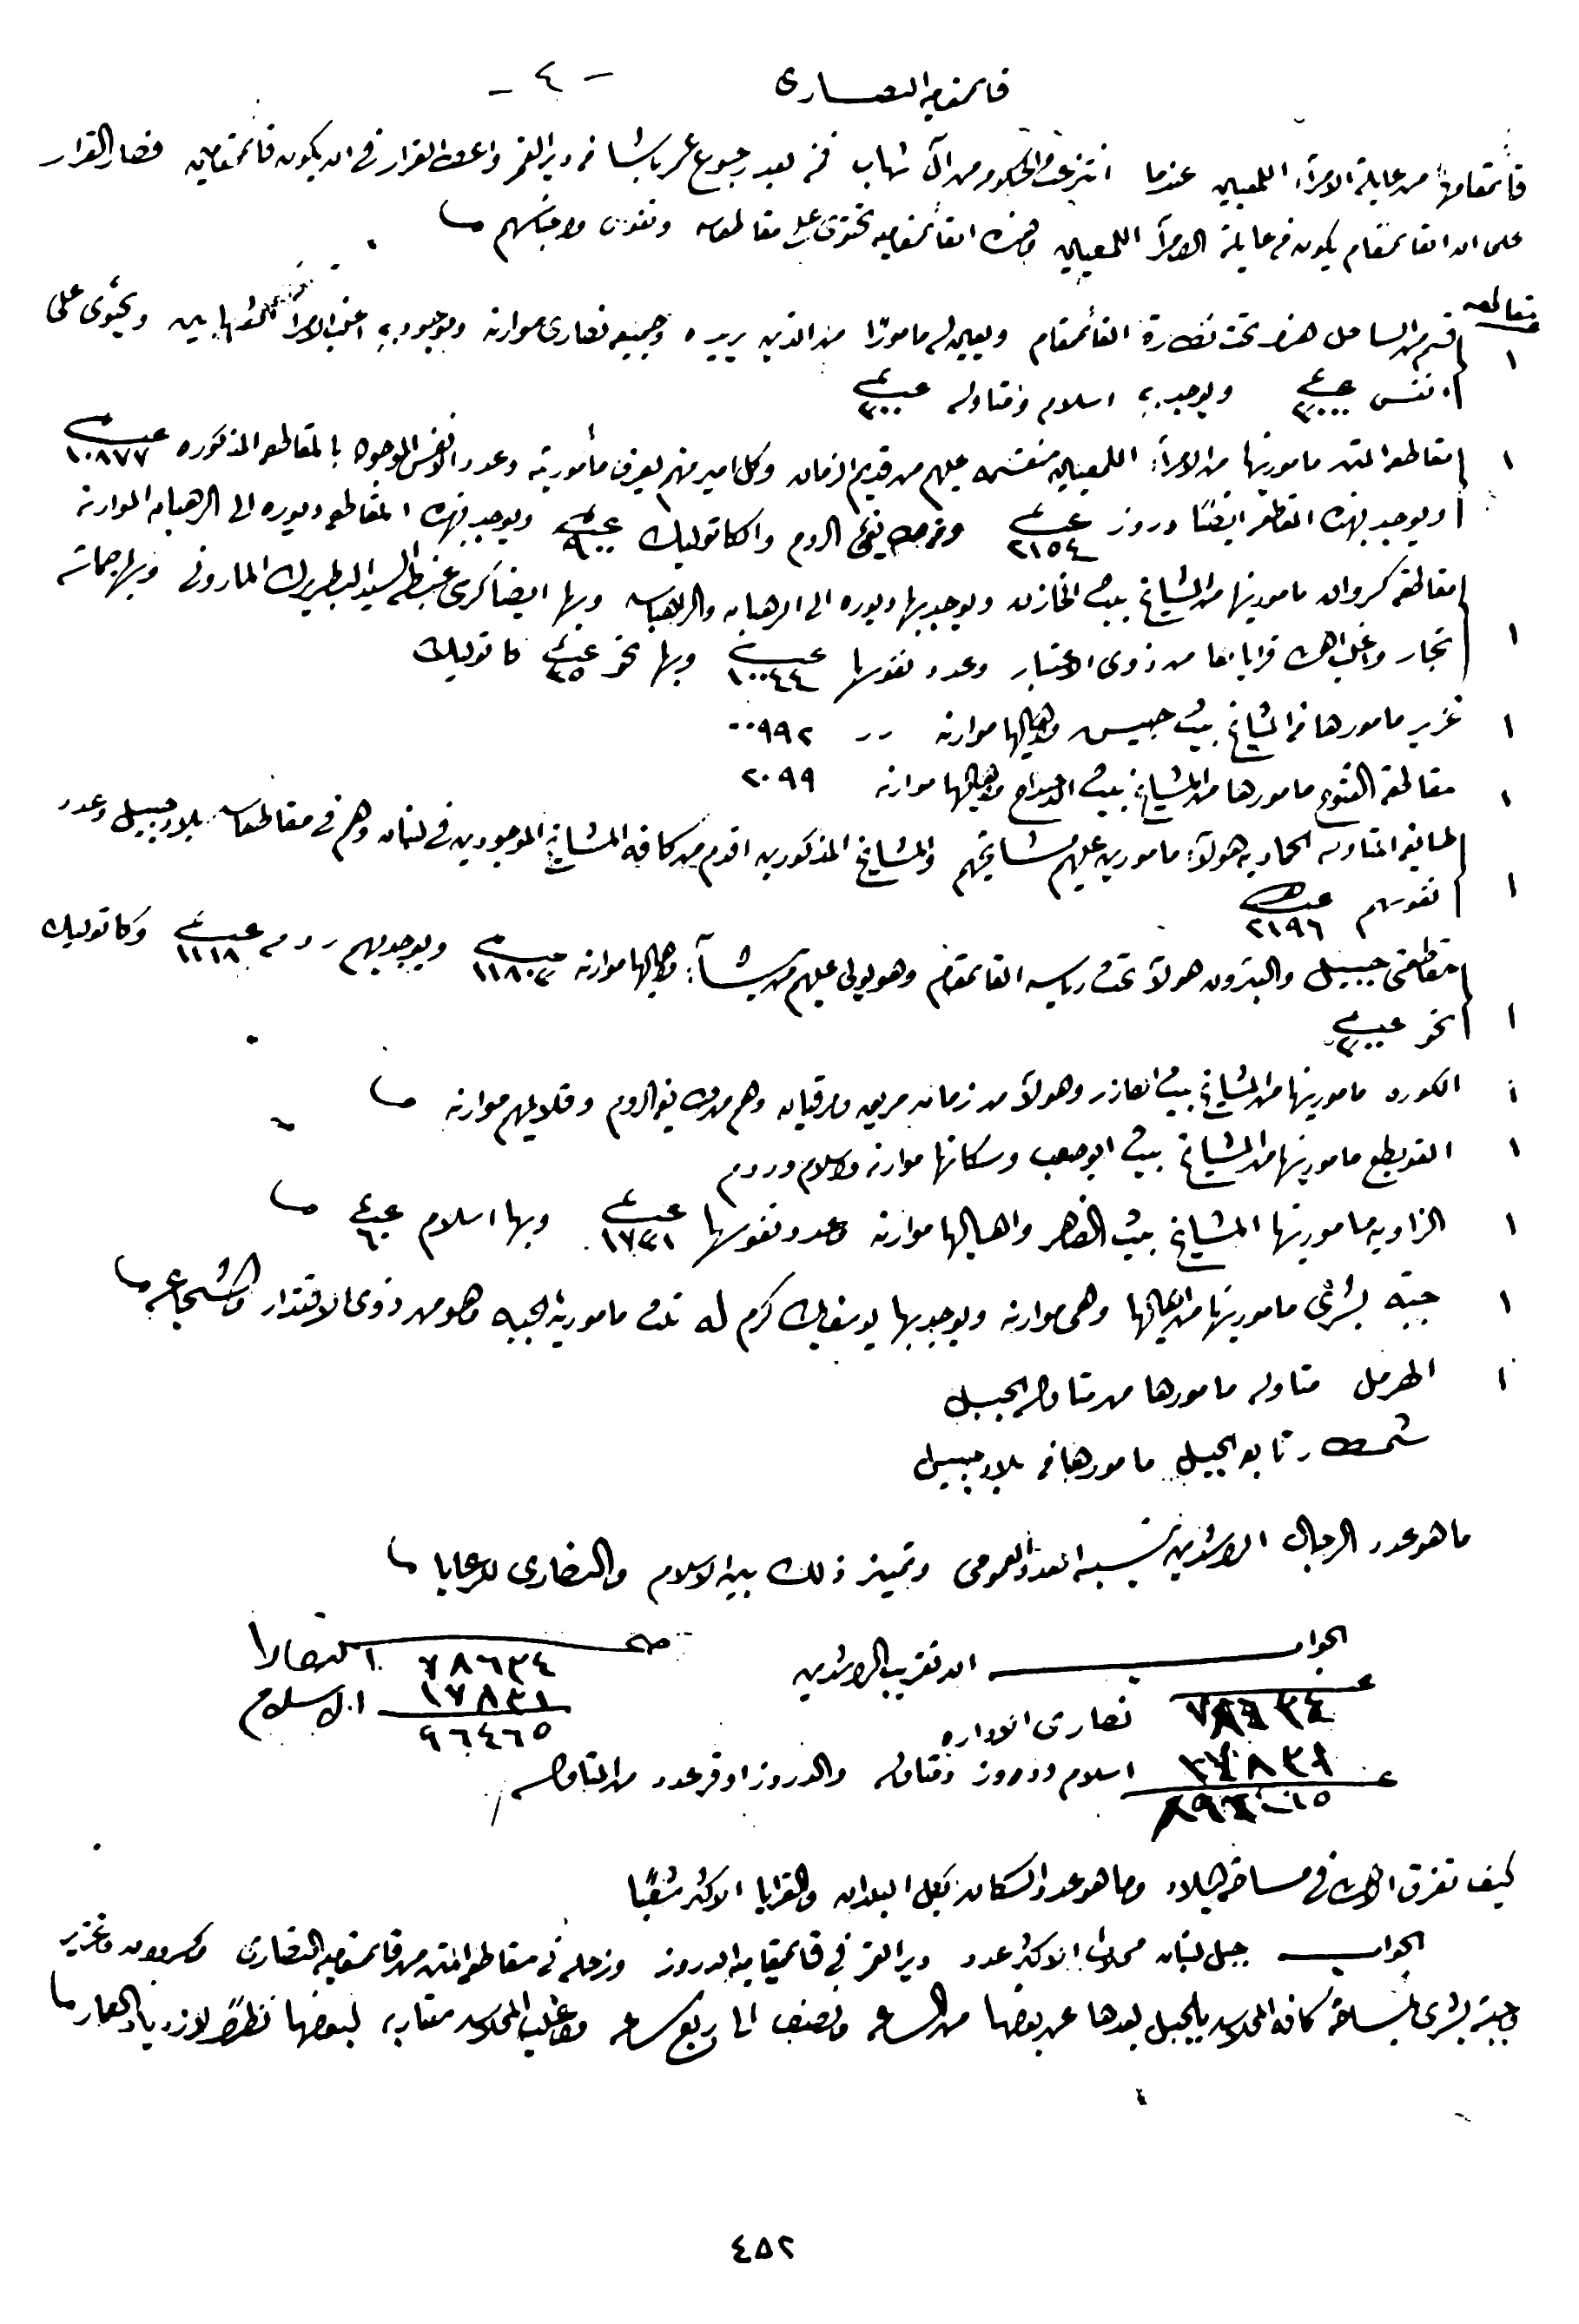 قائمقامية النصارى - ٤ -
قائمقامها من عايلة الامرآء اللمعيين عندما انتزعت الحكومه من آل شهاب فمن بعد رجوع عمر باشا من دير القمر واعطى القرار في ان يكون قائمقامين فصار القرار
على ان القائمقام يكون من عايلة الامرآ اللمعيين وهذه القائمقاميه تحتوى على مقاطعات ونفوس واجناسهم
مقاطعه
١ قسم من الساحل هذا تحت نظارة القائمقام ويعين له مامورًا من الذين يريده وجميعه نصارى موارنه وموجود به اغلب الامرآ الشهابيين ويحتوى على
نفس ويوجد به اسلام ومتاوله
١ مقاطعة المتن ماموريتها من الامرآء اللمعيين منقسمه عليهم من قديم الزمان وكل امير منهم يعرف مأموريته وعدد الانفس الموجوده بالمقاطعه المذكوره ١٠٨٧٧
ويوجد بهذه المقاطعه ايضًا دروز ٢١٥٤ ومن طايفتى الروم والكاتوليك ٩٠٠ ويوجد بهذه المقاطعه ديوره الى الرهبان الموارنه
مقاطعة كسروان ماموريتها من المشايخ بيت الخازن ويوجد بها ديوره الى الرهبان والراهبات وبها ايضا كرسى غبطة السيد البطريرك المارونى وبها جماعة
١ تجار واغلب اهل قراياها من ذوى الاعتبار وعدد نفوسها ١٠٠٤٤ وبها نحو ٤٥ كاتوليك
١ غزير مامورها من المشايخ بيت حبيش واهاليها موارنه ٠٠٩٩٢
١ مقاطعة الفتوح مامورها من المشايخ بيت الدحداح واهاليها موارنه ٢٠٩٩
طايفة المتاوله الحماديه هولآء مامورين عليهم مشايخهم والمشايخ المذكورين اقدم من كافة المشايخ الموجودين في لبنان وهم في مقاطعات بلاد جبيل وعدد
١ نفوسهم ٢١٩٦
مقاطعتى جبيل والبترون هولآء تحت رياسة القائمقام وهو يولى عليهم من يشآء واهاليها موارنه ١١٨٠٢ ويوجد بهم روم ١١١٨ وكاتوليك
١ نحو
١ الكوره ماموريتها من المشايخ بيت العازر وهولآء من زمان مريق ومرقيان وهم من طايفة الروم وقلايلهم موارنه
١ القويطع ماموريتها من المشايخ بيت ابو صعب وسكانها موارنه واسلام وروم
١ الزاويه ماموريتها المشايخ بيت الضاهر واهاليها موارنه وعدد نفوسها ١٧٢١ وبها اسلام ٦٠
١ جبة بشرى ماموريتها من اهاليها وهى موارنه ويوجد بها يوسف بك كرم له تلت مامورية الجبه وهو من ذوى الاقتدار والشجاعه
١ الهرمل متاوله مامورها من متاولة الجبيل
شمسطار تابع الجبيل مامورها من بلاد جبيل
ما هو عدد الرجال الراشدين بنسبة العدد العمومى وتميز ذلك بين الاسلام والنصارى للرعايا
الجواب ان تقريب الراشدين صح ٧٨٦٣٤ النصارا
٧٨٦٣٤ نصارى الاداره ١٧٨٣١ الاسلام
١٧٨٣١ اسلام ودروز ومتاوله والدروز اوفر عدد من المتاوله ٩٦٤٦٥
كيف تفرق الاهل في مساحة البلاد وما هو عدد السكان بكل البلدان والقرايا الاكثر شعبًا
الجواب جبل لبنان محلات الاكثر عدد دير القمر في قائمقامية الدروز وزحله في مقاطعة المتن من قائمقامية النصارى وكسروان وغزير
وجبة بشرى بمساحة كافة المحلات بالجبل بعدها عن بعضها من الساعه ونصف الى ربع ساعه واغلب المحلات متقاربه لبعضها نظرًا لازدياد العمار
٤٥٢